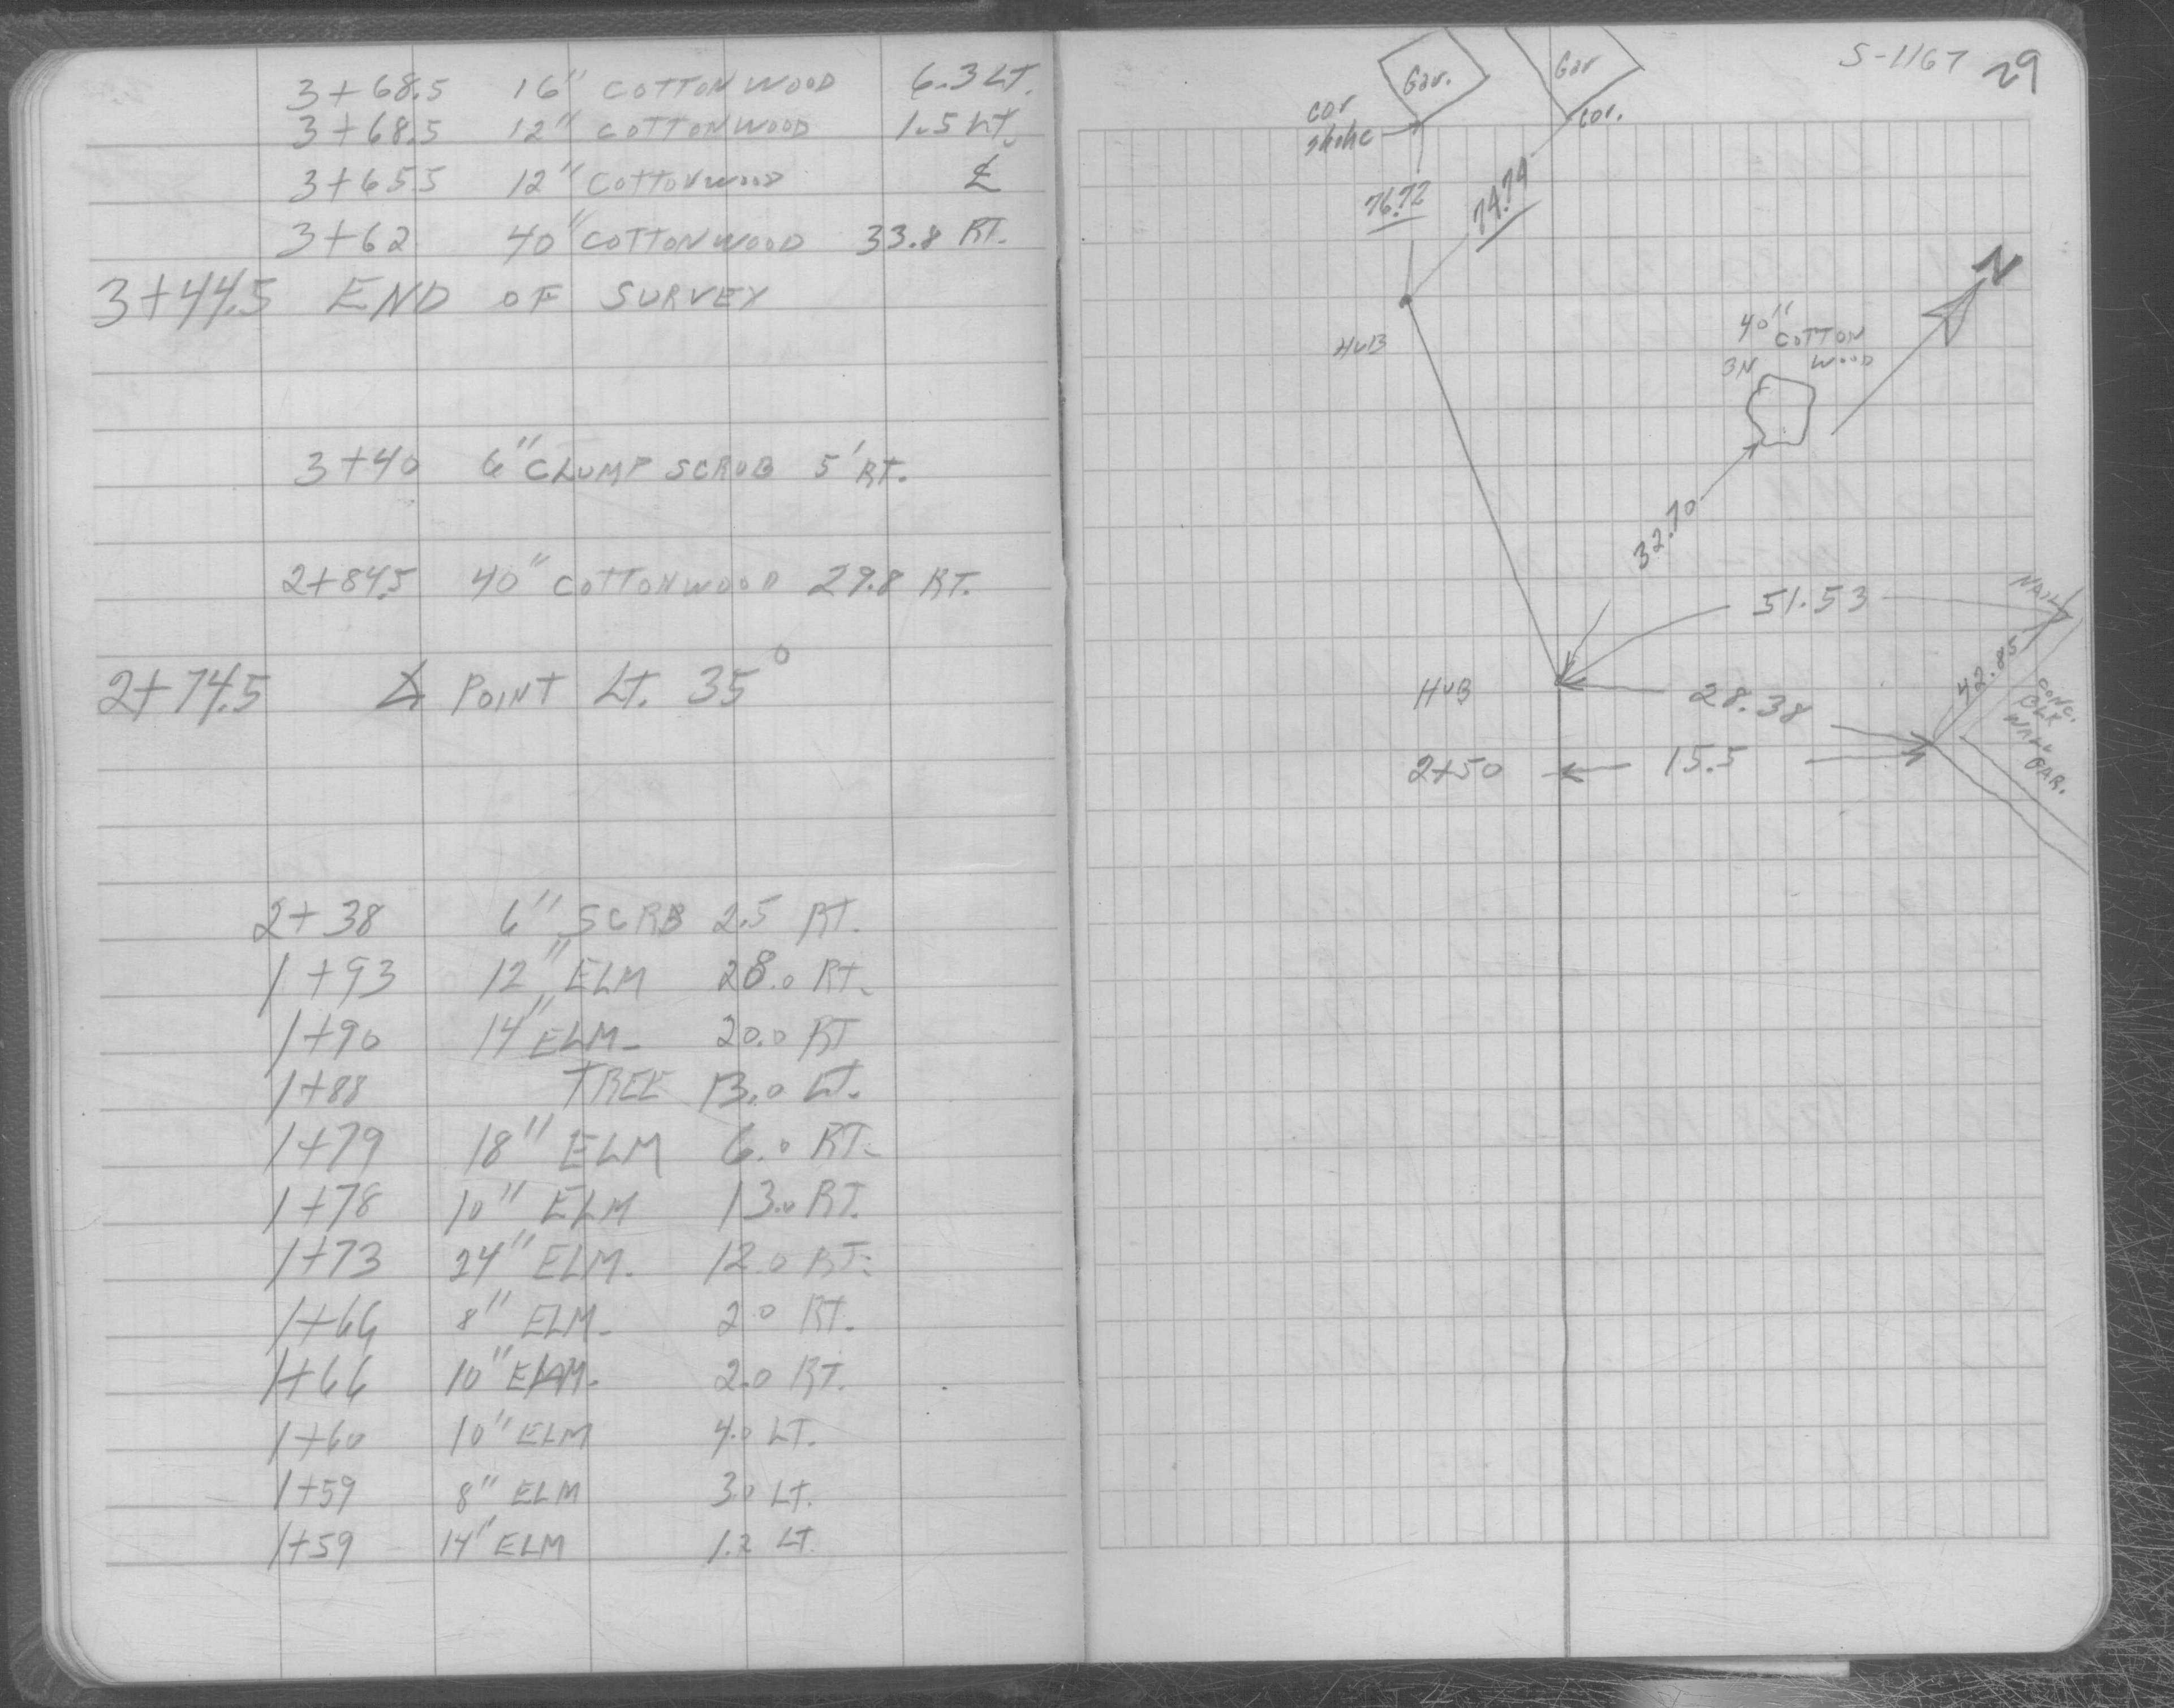 3+68.5 16" COTTONWOOD 6.3 LT.
3+68.5 12" COTTONWOOD 1.5 LT.
3+65.5 12" COTTONWOOD ℄
3+62 40" COTTONWOOD 33.8 RT.
3+44.5 END OF SURVEY
3+40 6" CLUMP SCRUB 5' RT.
2+84.5 40" COTTONWOOD 29.8 RT.
2+74.5 ∆ POINT LT. 35°
2+38 6" SCRB 2.5 RT.
1+93 12" ELM 28.0 RT.
1+90 14" ELM 20.0 RT
1+88 TREE 13.0 LT.
1+79 18" ELM 6.0 RT.
1+78 10" ELM 13.0 RT.
1+73 24" ELM. 12.0 RT.
1+66 8" ELM. 2.0 RT.
1+66 10" ELM. 2.0 RT.
1+60 10" ELM 4.0 LT.
1+59 8" ELM 3.0 LT.
1+59 14" ELM 1.2 LT.
S-1167 29
Gar. Gar
cor
cor.
76.72 74.79
N
HUB
40"
COTTON
WOOD
32.70
51.53
NAIL
42.85
HUB
28.38
CONC.
BLK
WALL
GAR.
2+50 15.5